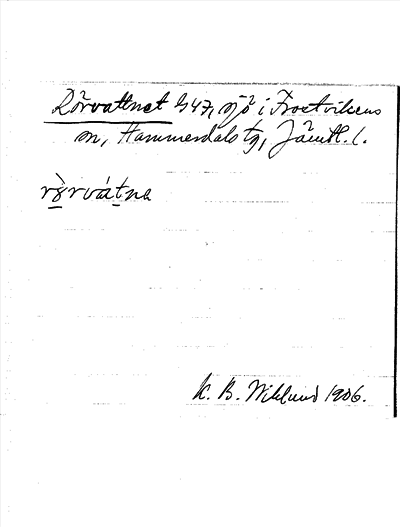 Rörvattnet 547, sjö i Frostvikens
sn, Hammerdals tg, Jämtl. l.
rɣ̀rvátna
K. B. Wiklund 1906.